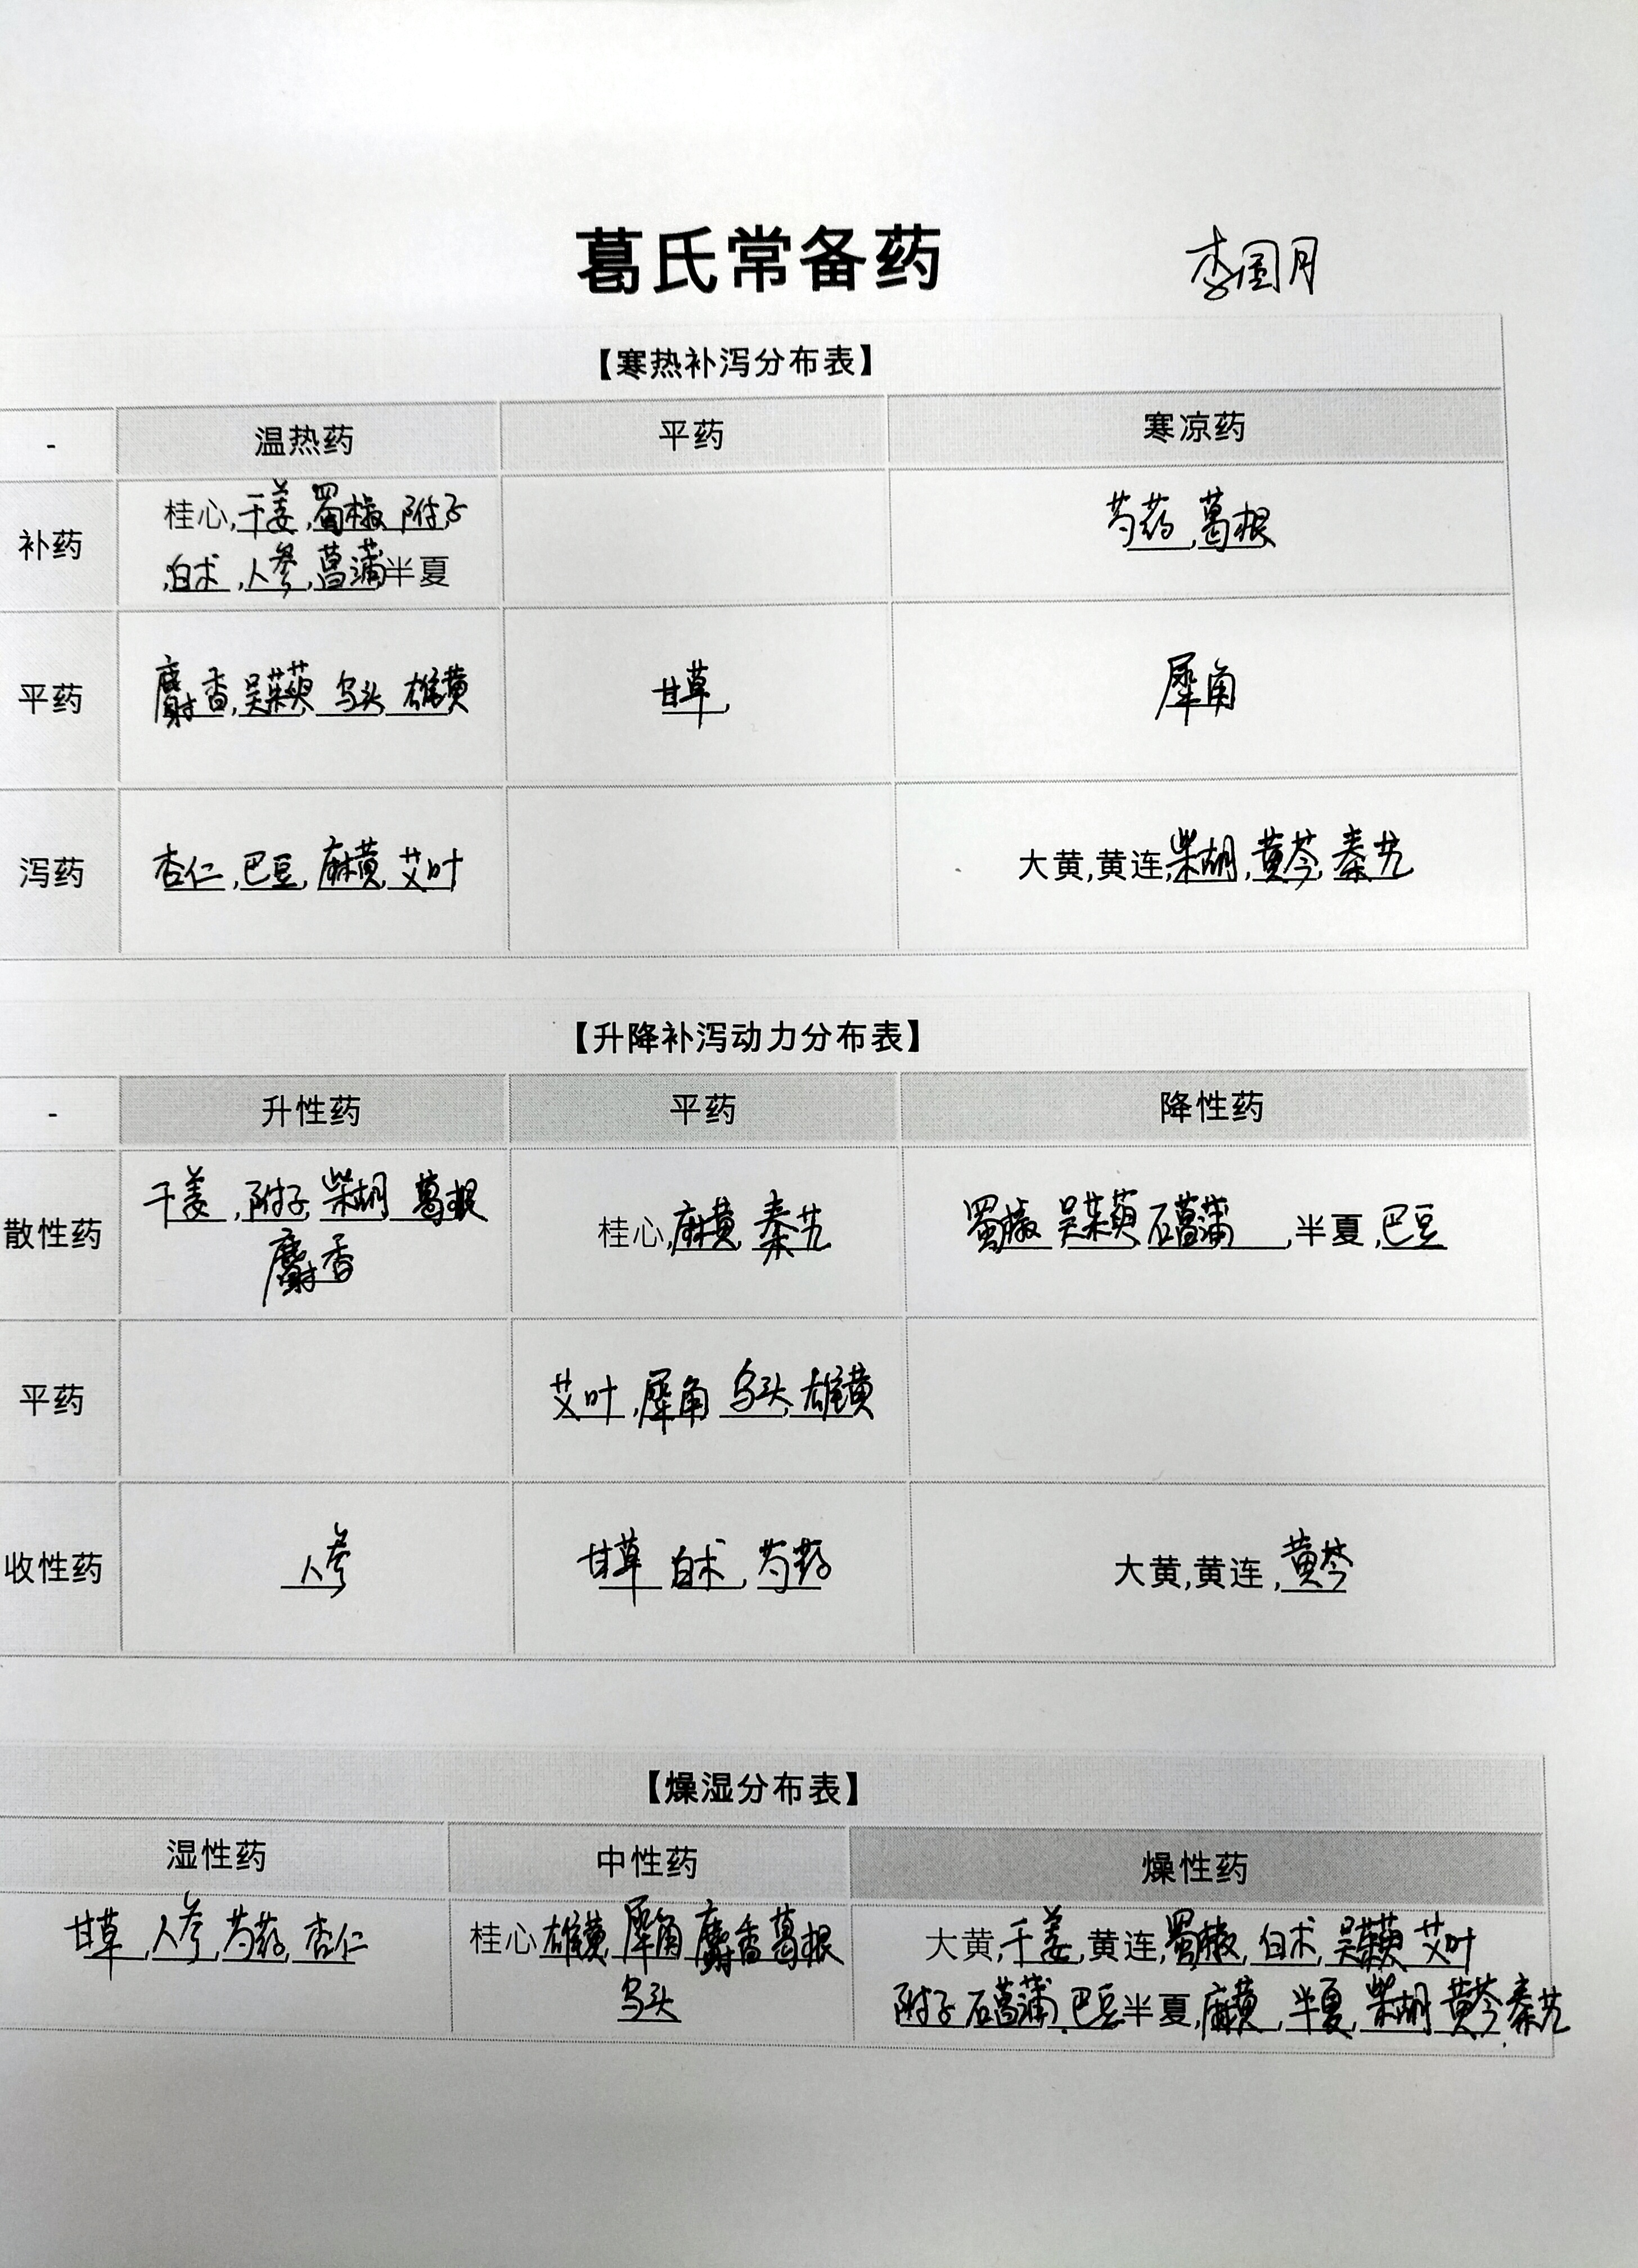 葛氏常备药 李国月
【寒热补泻分布表】
- 温热药 平药 寒凉药
补药 桂心,干姜,蜀椒,附子 芍药,葛根
,白术,人参,菖蒲半夏
平药 麝香,吴茱萸 乌头 雄黄 甘草, 犀角
泻药 杏仁,巴豆,麻黄,艾叶 大黄,黄连,柴胡,黄芩,秦艽
【升降补泻动力分布表】
- 升性药 平药 降性药
散性药 干姜,附子 柴胡 葛根 桂心,麻黄 秦艽 蜀椒 吴茱萸 石菖蒲,半夏,巴豆
麝香
平药 艾叶,犀角 乌头,雄黄
收性药 人参 甘草 白术,芍药 大黄,黄连,黄芩
【燥湿分布表】
湿性药 中性药 燥性药
甘草,人参,芍药,杏仁 桂心 雄黄 犀角 麝香 葛根 大黄,干姜,黄连,蜀椒,白术,吴茱萸 艾叶
乌头 附子 石菖蒲,巴豆半夏,麻黄,半夏,柴胡 黄芩,秦艽